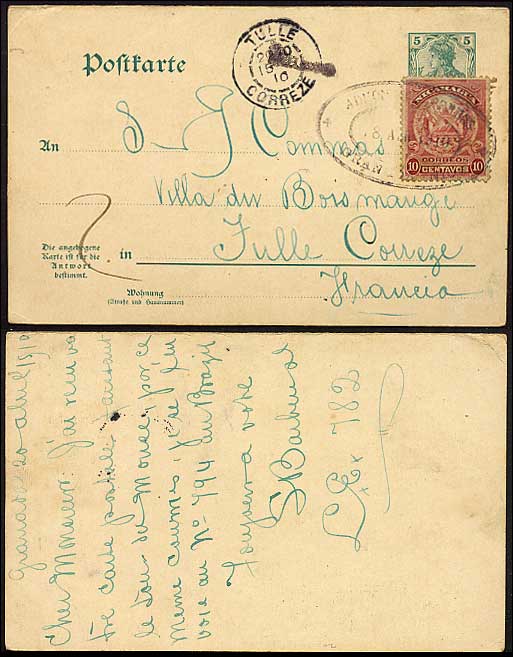 Postkarte
TULLE
15
10
CORREZE
5 5
NICARAGUA
CORREOS
10 CENTAVOS 10
An
S J Commas
Villa du Bosmange
Tulle Correze
Francia
in
Die angebogene
Karte ist für die
Antwort
bestimmt.
Wohnung
(Straße und Hausnummer)
Granada 20 abril/910
Cher Monsieur: J'ai reçu vo
tre carte postale faisant
le tour du Monde, par ce
meme courrier, je se l'en
voie au No 794 au Brazil
Toujours a votre
S Barberat
L.Ex 782